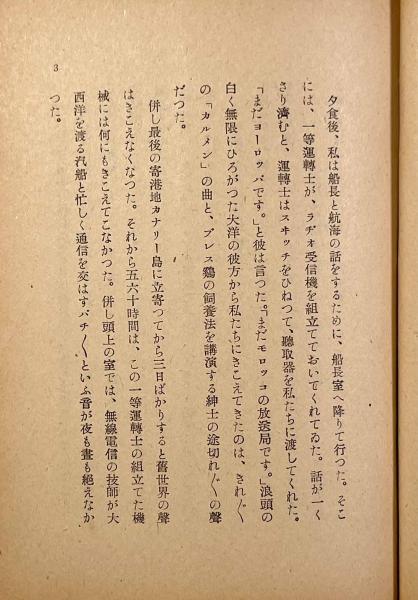 夕食後、私は船長と航海の話をするために、船長室へ降りて行つた。そこ
には、一等運轉士が、ラヂオ受信機を組立てておいてくれてゐた。話が一く
さり濟むと、運轉士はスヰッチをひねつて、聽取器を私たちに渡してくれた。
「まだヨーロッパです。」と彼は言つた。「まだモロッコの放送局です。」浪頭の
白く無限にひろがつた大洋の彼方から私たちにきこえてきたのは、きれ〴〵
の「カルメン」の曲と、ブレス鷄の飼養法を講演する紳士の途切れ〴〵の聲
だつた。
併し最後の寄港地カナリー島に立寄つてから三日ばかりすると舊世界の聲
はきこえなくなつた。それから五六十時間は、この一等運轉士の組立てた機
械には何にもきこえてこなかつた。併し頭上の室では、無線電信の技師が大
西洋を渡る汽船と忙しく通信を交はすパチ〳〵といふ音が夜も晝も絶えなか
つた。
3